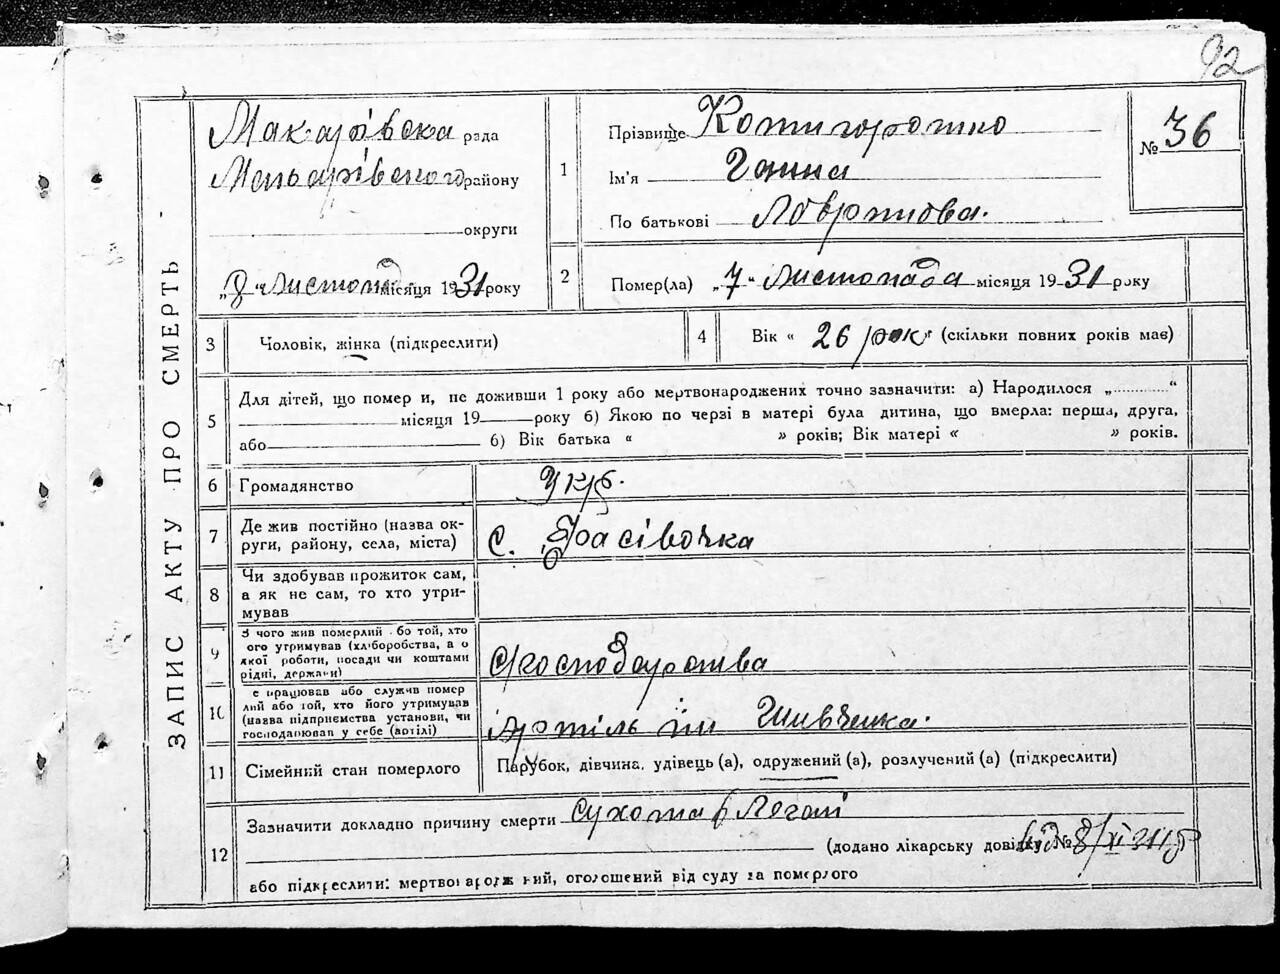 92
ЗАПИС АКТУ ПРО СМЕРТЬ
Макарівска рада
Макарівского району
округи
„8“ Листопад місяця 1931 року
1
Прізвище
Ім'я Ганна
По батькові
№ 36
2
Помер(ла) „7“ Листопада місяця 1931 року
3
Чоловік, жінка (підкреслити)
4
Вік « 26 рок » (скільки повних років має)
5
Для дітей, що помер и, не доживши 1 року або мертвонароджених точно зазначити: а) Народилося „ “
місяця 19 року б) Якою по черзі в матері була дитина, що вмерла: перша, друга,
або б) Вік батька « » років; Вік матері « » років.
6
Громадянство Укр.
7
Де жив постійно (назва ок-
руги, району, села, міста)
с. Фасівочка
8
Чи здобував прожиток сам,
а як не сам, то хто утри-
мував
9
З чого жив померлий бо той, хто
ого утримував (хліборобства, а о
якої роботи, посади чи коштами
рідні, держави)
10
е працював або служив помер
лий або той, хто його утримував
(назва підприємства установи, чи
господарював у себе (артілі)
Артіль ім Шевченка.
11
Сімейний стан померлого
Парубок, дівчина, удівець (а), одружений (а), розлучений (а) (підкреслити)
12
Зазначити докладно причину смерти Сухота Легені
(додано лікарську довідку № 8/XI 31 р
або підкреслити: мертвонароджений, оголошений від суду за померлого